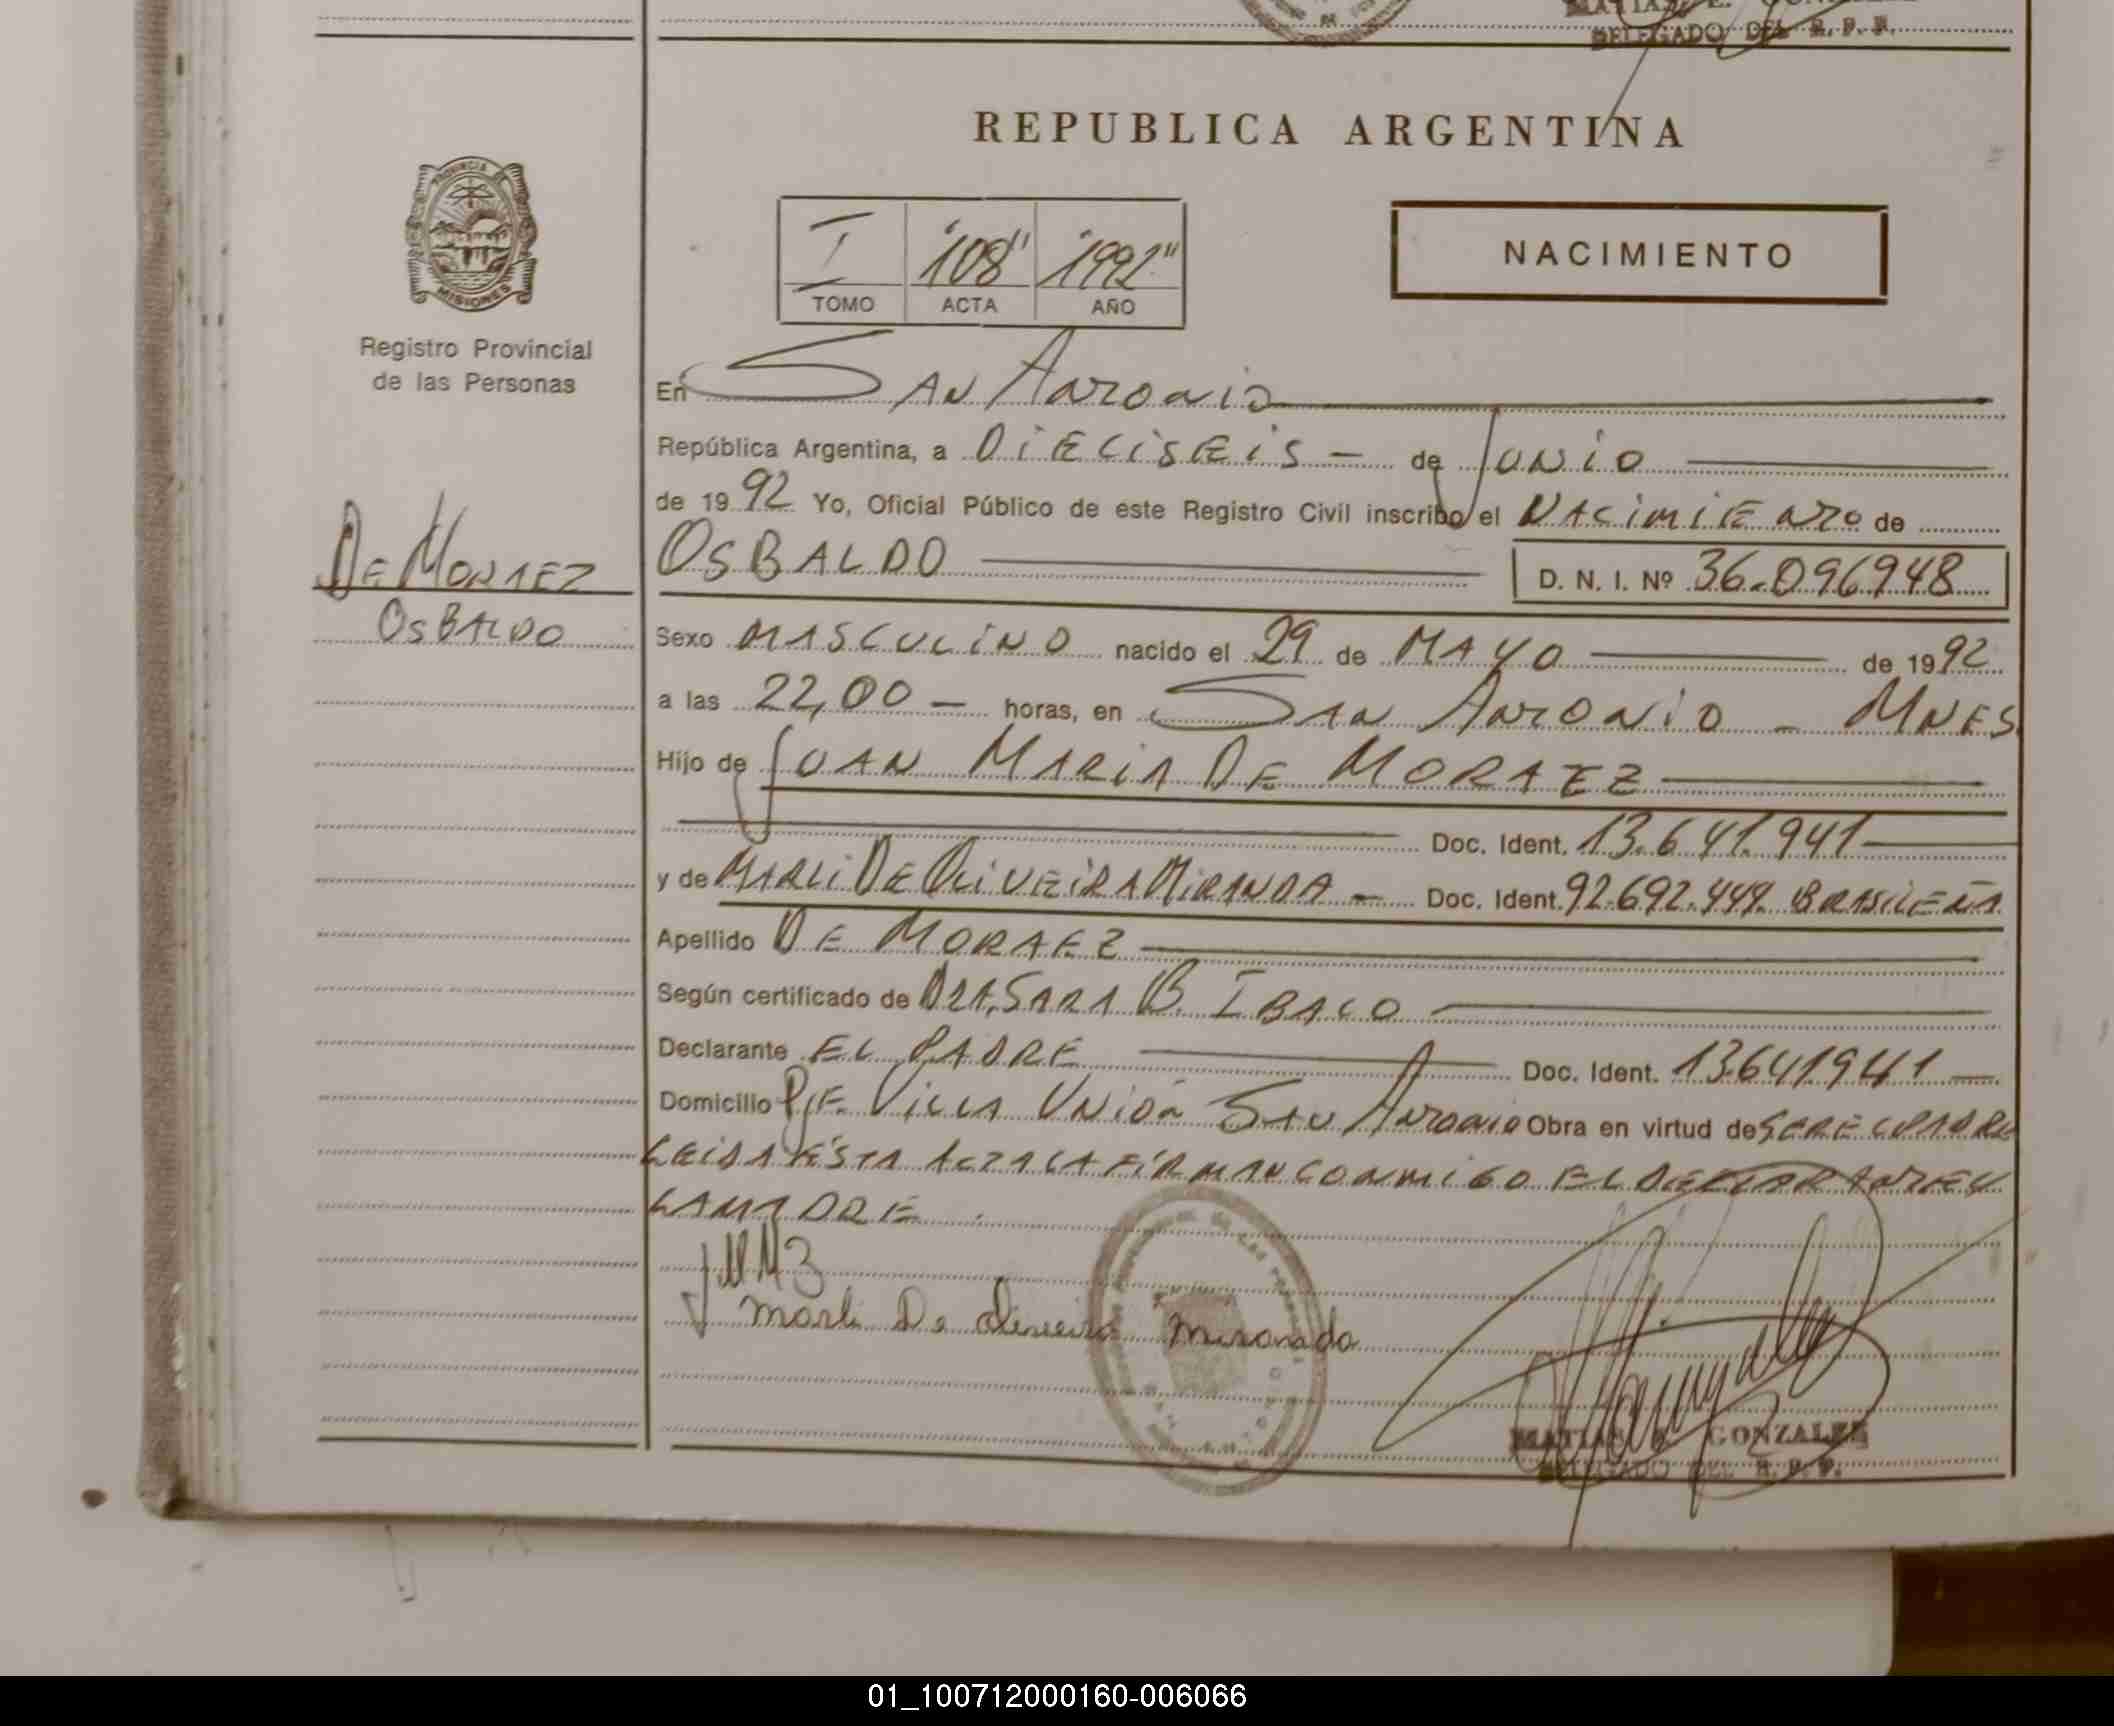 MATIAS E. GONZALEZ
DELEGADO DEL R. P. P.
REPUBLICA ARGENTINA
PROVINCIA
MISIONES
Registro Provincial
de las Personas
I "108" "1992"
TOMO ACTA AÑO
NACIMIENTO
En San Antonio
República Argentina, a Dieciseis - de Junio
de 1992 Yo, Oficial Público de este Registro Civil inscribo el Nacimiento de
De Moraez
Osbaldo
Osbaldo D. N. I. Nº 36.096948
Sexo Masculino nacido el 29 de Mayo de 1992
a las 22,00 - horas, en San Antonio - Mnes.
Hijo de Juan Maria De Moraez
Doc. Ident. 13.641.941
y de Marli De Oliveira Miranda - Doc. Ident. 92.692.449. Brasileña
Apellido De Moraez
Según certificado de Dra. Sara B. Ibaco
Declarante El Padre Doc. Ident. 13641941 -
Domicilio Pje. Villa Unión San Antonio Obra en virtud de
Leida ésta acta la firman conmigo el declarante y
la madre.
JMMZ
Marli De oliveira miranda
MATIAS E. GONZALEZ
DELEGADO DEL R. P. P.
01_100712000160-006066